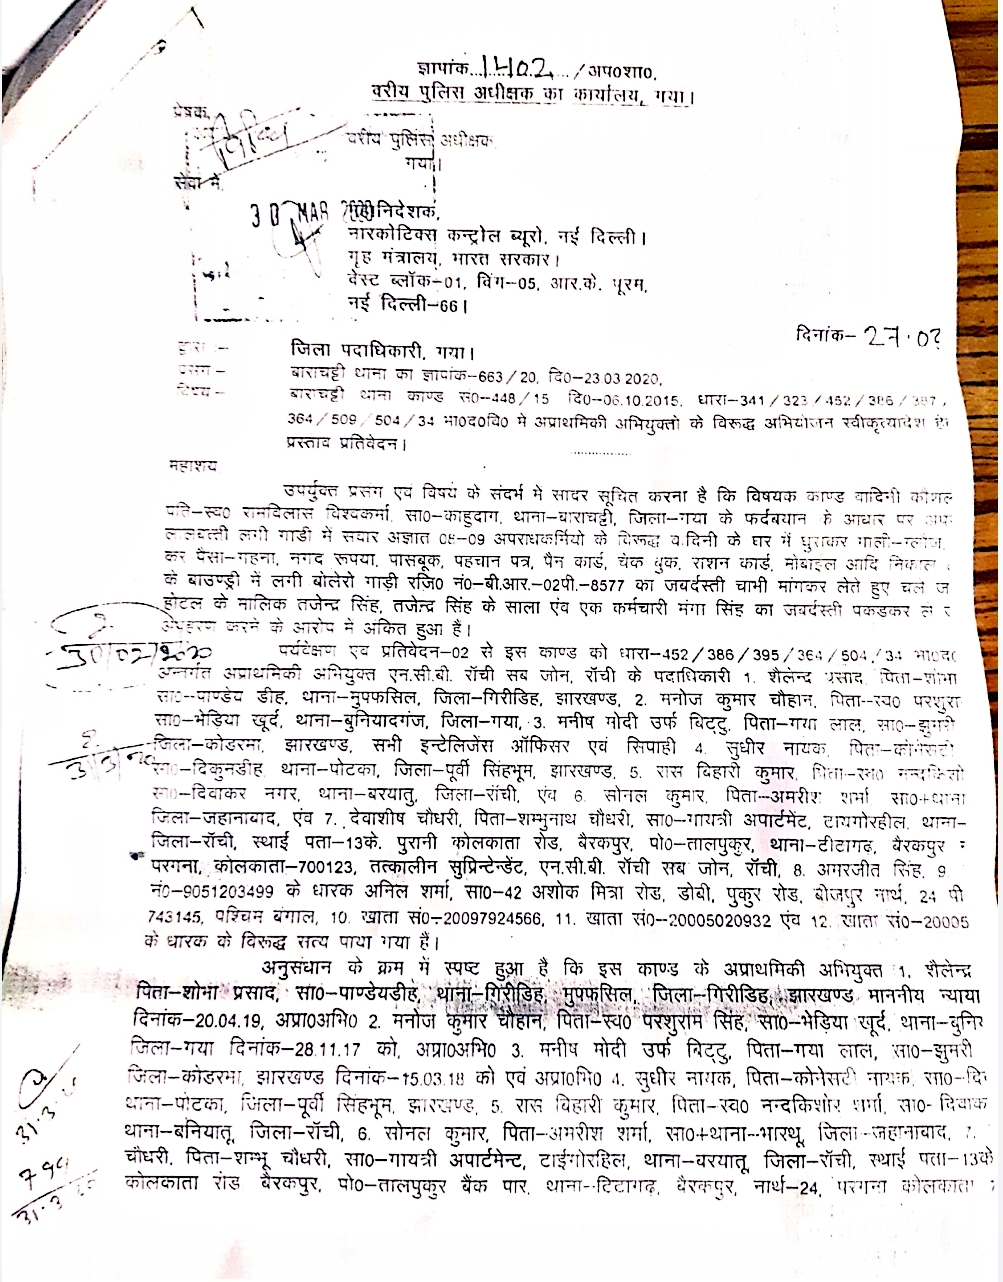 ज्ञापांक...1402.../अप०शा०,
वरीय पुलिस अधीक्षक का कार्यालय, गया।
प्रेषक,
वरीय पुलिस अधीक्षक,
गया।
सेवा में,
30 MAR
निदेशक,
नारकोटिक्स कन्ट्रोल ब्यूरो, नई दिल्ली।
गृह मंत्रालय, भारत सरकार।
वेस्ट ब्लॉक-01, विंग-05, आर.के. पूरम,
नई दिल्ली-66।
दिनांक- 27.03
द्वारा :- जिला पदाधिकारी, गया।
प्रसंग - बाराचट्टी थाना का ज्ञापांक-663/20, दि०-23.03.2020,
विषय - बाराचट्टी थाना काण्ड सं०-448/15 दि०-06.10.2015, धारा-341/323/452/386/387,
364/509/504/34 भा०द०वि० मे अप्राथमिकी अभियुक्तो के विरूद्ध अभियोजन स्वीकृत्यादेश
प्रस्ताव प्रतिवेदन।
महाशय
उपर्युक्त प्रसंग एवं विषय के संदर्भ में सादर सूचित करना है कि विषयक काण्ड वादिनी
पति-स्व० रामविलास विश्वकर्मा, सा०-काहुदाग, थाना-बाराचट्टी, जिला-गया के फर्दबयान के आधार पर
लालबत्ती लगी गाडी में सवार अज्ञात 08-09 अपराधकर्मियो के विरूद्ध वादिनी के घर में घुसकर गाली-ग्लौज,
कर पैसा-गहना, नगद रूपया, पासबूक, पहचान पत्र, पैन कार्ड, चेक बुक, राशन कार्ड, मोबाईल आदि निकाल
के बाउण्ड्री में लगी बोलेरो गाड़ी रजि० नं०-बी.आर.-02पी.-8577 का जबर्दस्ती चाभी मांगकर लेते हुए चले
होटल के मालिक तजेन्द्र सिंह, तजेन्द्र सिंह के साला एंव एक कर्मचारी मंगा सिंह का जबर्दस्ती पकडकर ले
अपहरण करने के आरोप में अंकित हुआ है।
पर्यवेक्षण एव प्रतिवेदन-02 से इस काण्ड को धारा-452/386/395/364/504/34
अन्तर्गत अप्राथमिकी अभियुक्त एन.सी.बी. रॉची सब जोन, रॉची के पदाधिकारी 1. शैलेन्द्र प्रसाद, पिता-शोभा
सा०-पाण्डेय डीह, थाना-मुफ्फसिल, जिला-गिरीडिह, झारखण्ड, 2. मनोज कुमार चौहान, पिता-स्व०
सा०-भेडिया खूर्द, थाना-बुनियादगंज, जिला-गया, 3. मनीष मोदी उर्फ बिट्टु, पिता-गया लाल, सा०-झुमरी
जिला-कोडरमा, झारखण्ड, सभी इन्टेलिजेंस ऑफिसर एवं सिपाही 4. सुधीर नायक, पिता-कोनेसटी
सा०-दिकुनडीह, थाना-पोटका, जिला-पूर्वी सिंहभूम, झारखण्ड, 5. रास बिहारी कुमार, पिता-स्व०
सा०-दिवाकर नगर, थाना-बरयातु, जिला-रॉची, एंव 6. सोनल कुमार, पिता-अमरीश शर्मा, सा०+थाना
जिला-जहानाबाद, एंव 7. देवाशीष चौधरी, पिता-शम्भुनाथ चौधरी, सा०-गायत्री अपार्टमेंट, टायगोरहील, थाना-
जिला-रॉची, स्थाई पता-13के. पुरानी कोलकाता रोड, बैरकपुर, पो०-तालपुकुर, थाना-टीटागढ, बैरकपुर
परगना, कोलकाता-700123, तत्कालीन सुप्रिन्टेन्डेंट, एन.सी.बी. रॉची सब जोन, रॉची, 8. अमरजीत सिंह, 9.
नं०-9051203499 के धारक अनिल शर्मा, सा०-42 अशोक मित्रा रोड, डोबी, पुकुर रोड, बीजपुर नार्थ, 24 पी
743145, पश्चिम बंगाल, 10. खाता सं०-20097924566, 11. खाता सं०-20005020932 एंव 12. खाता सं०-20005
के धारक के विरूद्ध सत्य पाया गया है।
अनुसंधान के क्रम में स्पष्ट हुआ है कि इस काण्ड के अप्राथमिकी अभियुक्त 1. शैलेन्द्र
पिता-शोभा प्रसाद, सा०-पाण्डेयडीह, थाना-गिरीडिह, मुफ्फसिल, जिला-गिरीडिह, झारखण्ड माननीय न्याया
दिनांक-20.04.19, अप्रा०अभि० 2. मनोज कुमार चौहान, पिता-स्व० परशुराम सिंह, सा०-भेड़िया खूर्द, थाना-बुनि
जिला-गया दिनांक-28.11.17 को, अप्रा०अभि० 3. मनीष मोदी उर्फ बिट्टु, पिता-गया लाल, सा०-झुमरी
जिला-कोडरमा, झारखण्ड दिनांक-15.03.18 को एवं अप्रा०भि० 4. सुधीर नायक, पिता-कोनेसटी नायक, सा०-दि
थाना-पोटका, जिला-पूर्वी सिंहभूम, झारखण्ड, 5. रास बिहारी कुमार, पिता-स्व० नन्दकिशोर शर्मा, सा०-दिवाक
थाना-बनियातू, जिला-रॉची, 6. सोनल कुमार, पिता-अमरीश शर्मा, सा०+थाना-भारथू, जिला-जहानाबाद, 7.
चौधरी, पिता-शम्भू चौधरी, सा०-गायत्री अपार्टमेन्ट, टाईगोरहिल, थाना-बरयातू, जिला-रॉची, स्थाई पता-13के
कोलकाता रोड बैरकपुर, पो०-तालपुकुर बैंक पार, थाना-टिटागढ, बैरकपुर, नार्थ-24, परगना कोलकाता
31.3
799
31.3